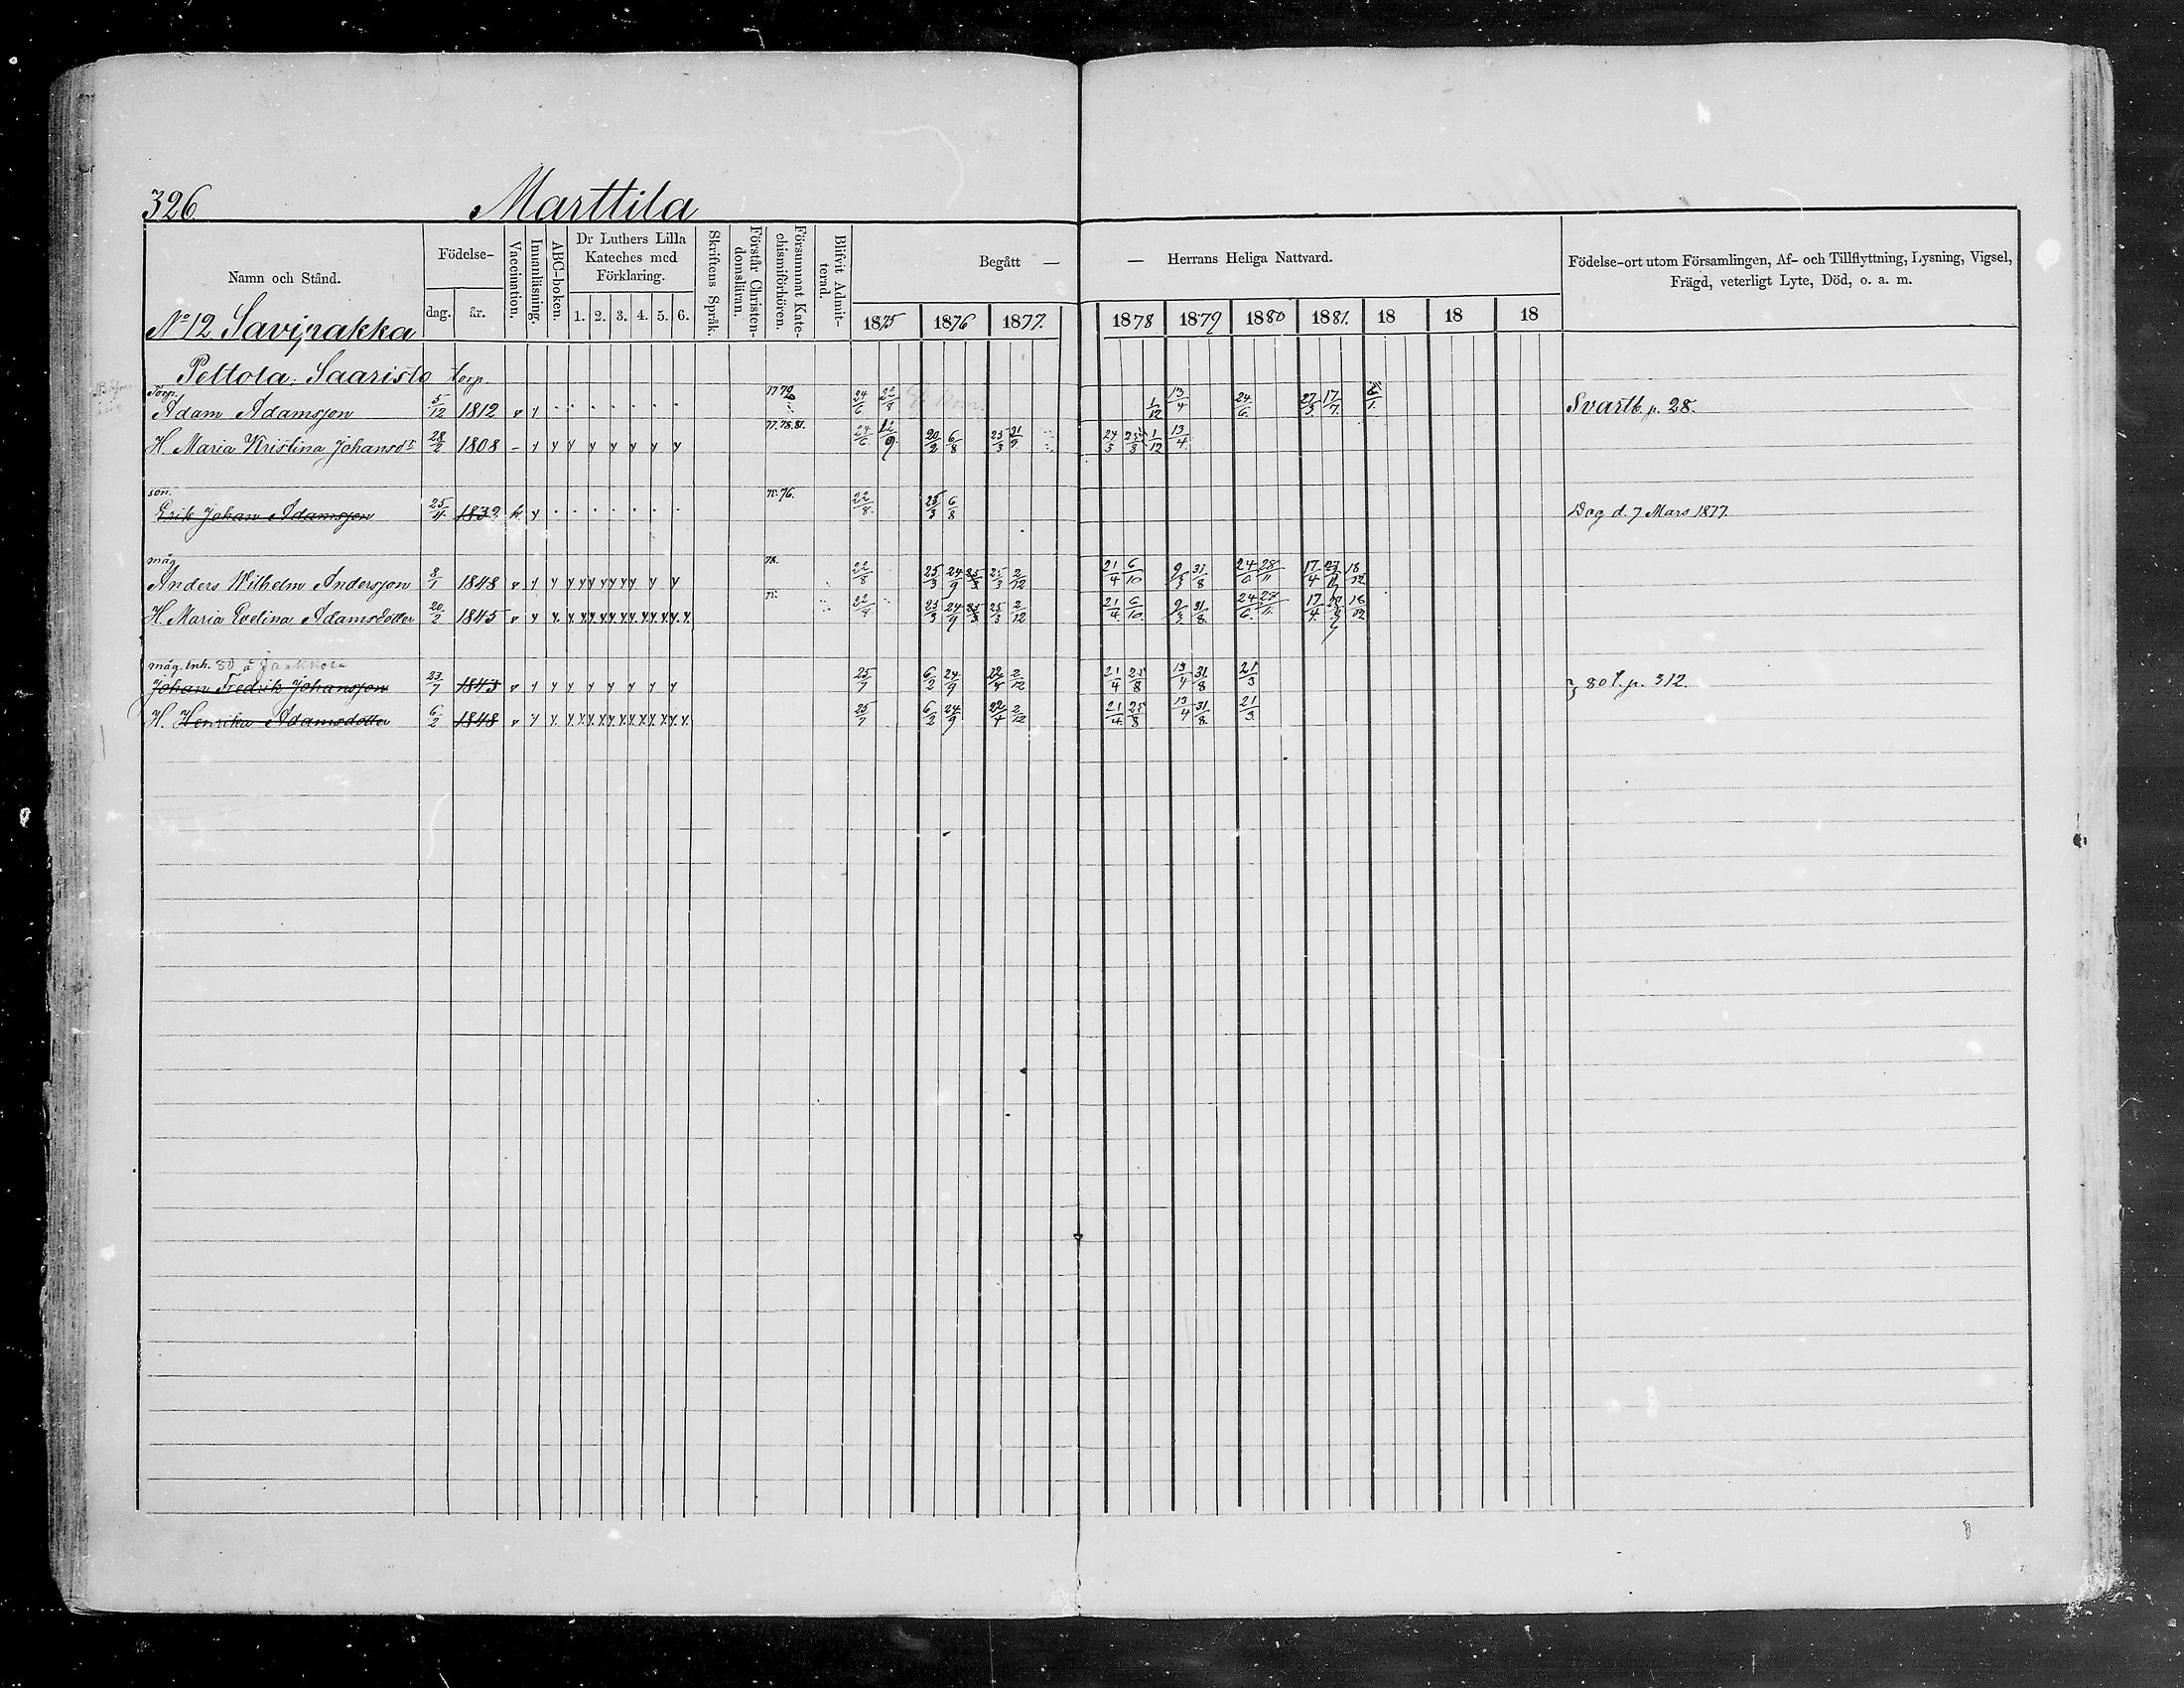 326 Marttila
Namn och Stånd. Födelse- dag. år. Vaccination. Innanläsning. ABC-boken. Dr Luthers Lilla Kateches med Förklaring. 1. 2. 3. 4. 5. 6. Skriftens Språk. Förstår Christen-domsläran. Försummat Kate-chismiförhören. Blifvit Admit-terad. Begått — — Herrans Heliga Nattvard. Födelse-ort utom Församlingen, Af- och Tillflyttning, Lysning, Vigsel, Frägd, veterligt Lyte, Död, o. a. m.
1875 1876 1877. 1878 1879 1880 1881. 18 18 18
No 12 Savipakka
Peltola. Saaristo torp.
Torp. 
Adam Adamsson 5/12 1812 v y 24/6 22/8 1/12 13/4 24/6. 27/3 17/7. Svartb. p. 28.
77. 78. 81.
H. Maria Kristina Johansdr 28/2 1808 – y y y y y y y y 24/6 12/9. 20/2 6/8 25/3 24/3 1/12 13/4
son. 75. 76.
Erik Johan Adamsson 25/11. 1839. y 22/8. 25/3 6/8 Dog d. 7 Mars 1877.
måg
Anders Wilhelm Andersson 8/1 1848 v y y y y y y y y y y 22/8 25/3 24/9 25/3 2/12 21/4 6/10 9/3 31/8 24/6 28/11 17/4 18/12
H. Maria Evelina Adamsdotter 20/2 1845 v y y y y y y y y y y y y y y 22/8 25/3 24/9 25/3 2/12 21/4 6/10. 9/3 31/8. 24/6. 28/11. 17/4. 18/12
måg. inh. 80 å Jaakkola
Johan Fredrik Johansson 23/7 1843 v y y y y y y y y 25/7 6/2 24/9 22/4 2/12 21/4 25/8 13/4 31/8 21/3 80 t. p. 312.
H. Henrika Adamsdotter 6/2 1848 v y y y y y y y y y y y y y y 25/7 6/2 24/9 22/4 2/12 21/4. 25/8 13/4 31/8. 21/3.